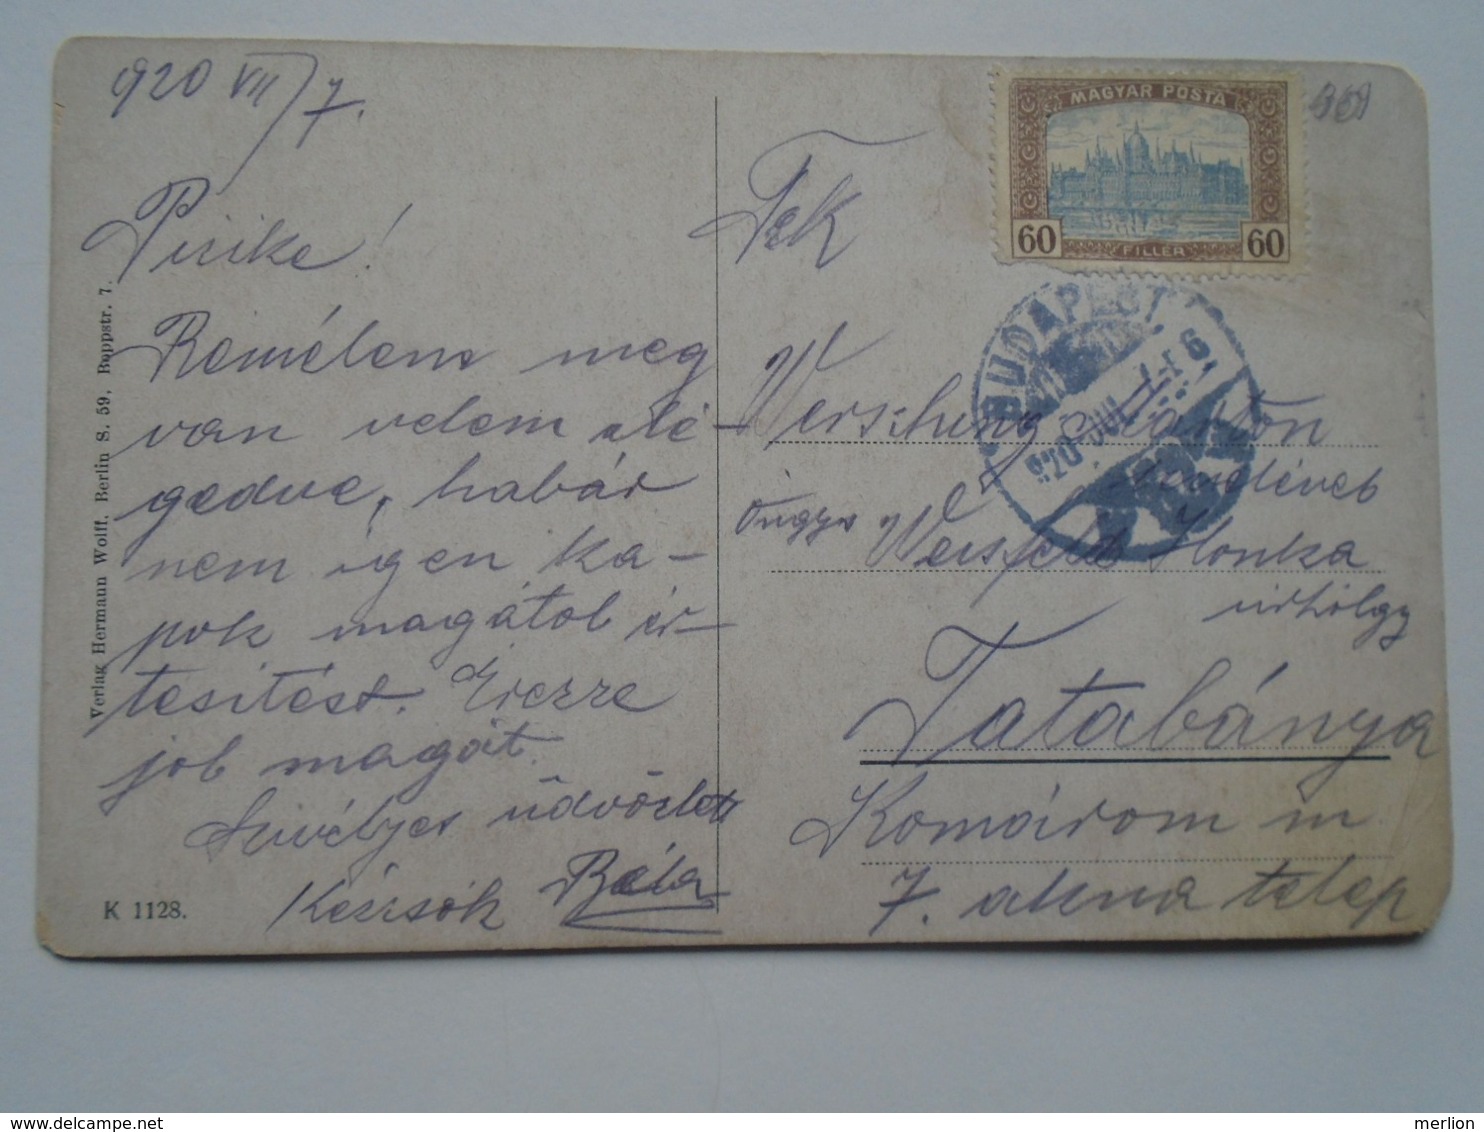 920 VII/7.
Pirike!
Remélem meg
van velem elé-
gedve, habár
nem igen ka-
pok magától ér-
tesitést. Érezze
jól magát.
Szivélyes üdvözlet
Kézcsók Béla
Verlag Hermann Wolff. Berlin S. 59, Boppstr. 7.
K 1128.
MAGYAR POSTA
60 FILLER 60
969
BUDAPEST
920 JUL
Tek
Wersching Márton
özvegy Weisfeld Ilonka
úrhölgy
Tatabánya
Komárom m
7. akna telep
merlion